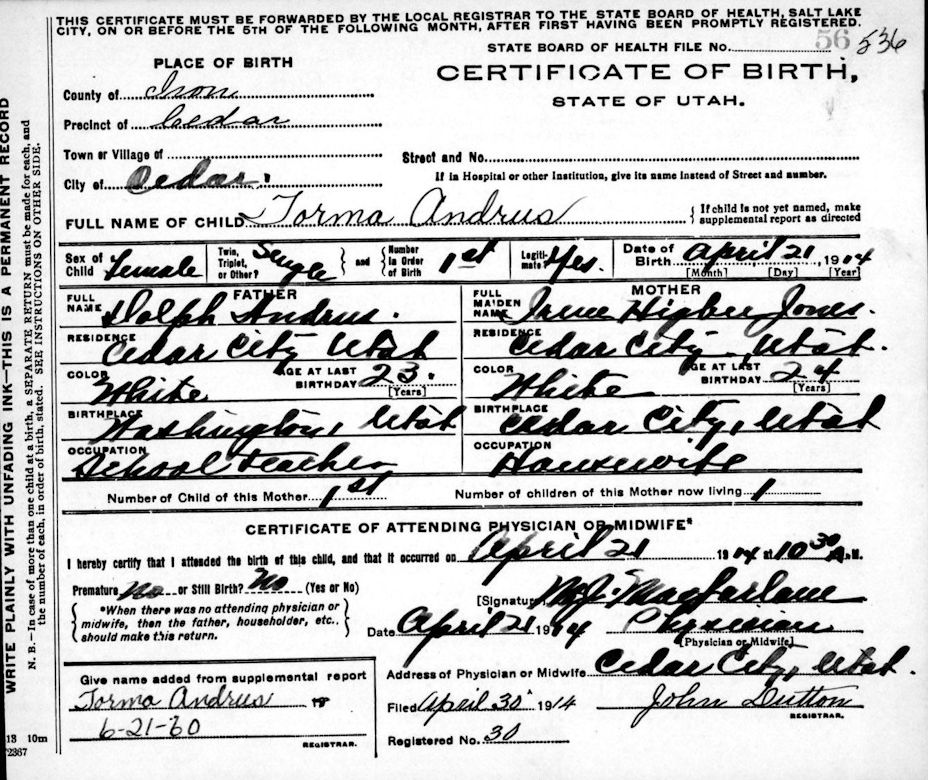 THIS CERTIFICATE MUST BE FORWARDED BY THE LOCAL REGISTRAR TO THE STATE BOARD OF HEALTH, SALT LAKE
CITY, ON OR BEFORE THE 5TH OF THE FOLLOWING MONTH, AFTER FIRST HAVING BEEN PROMPTLY REGISTERED.
STATE BOARD OF HEALTH FILE No. 56 536
PLACE OF BIRTH
CERTIFICATE OF BIRTH,
STATE OF UTAH.
County of Iron
Precinct of Cedar
Town or Village of
Street and No.
City of Cedar.
If in Hospital or other Institution, give its name instead of Street and number.
FULL NAME OF CHILD Torma Andrus { If child is not yet named, make supplemental report as directed
Sex of Child Female Twin, Triplet, or Other? Single } and { Number In Order of Birth 1st Legiti- mate? Yes. Date of Birth April 21, 1914
[Month] [Day] [Year]
FATHER MOTHER
FULL NAME Dolph Andrus. FULL MAIDEN NAME Irene Higbee Jones.
RESIDENCE Cedar City Utah RESIDENCE Cedar City, Utah.
COLOR White AGE AT LAST BIRTHDAY 23. [Years] COLOR White AGE AT LAST BIRTHDAY 24 [Years]
BIRTHPLACE Washington, Utah BIRTHPLACE Cedar City, Utah
OCCUPATION School Teacher OCCUPATION Housewife
Number of Child of this Mother 1st Number of children of this Mother now living 1
CERTIFICATE OF ATTENDING PHYSICIAN OR MIDWIFE*
I hereby certify that I attended the birth of this child, and that it occurred on April 21 1914 at 10 30 A.M.
Premature No or Still Birth? No (Yes or No)
{ *When there was no attending physician or midwife, then the father, householder, etc., should make this return. }
[Signature] Macfarlane
Date April 21 1914 Physician
[Physician or Midwife]
Address of Physician or Midwife Cedar City, Utah.
Give name added from supplemental report
Torma Andrus
6-21-60
REGISTRAR.
Filed April 30 1914 John Dutton
REGISTRAR.
Registered No. 30
13 10m
2367
WRITE PLAINLY WITH UNFADING INK—THIS IS A PERMANENT RECORD
N. B.—In case of more than one child at a birth, a SEPARATE RETURN must be made for each, and
the number of each, in order of birth, stated. SEE INSTRUCTIONS ON OTHER SIDE.